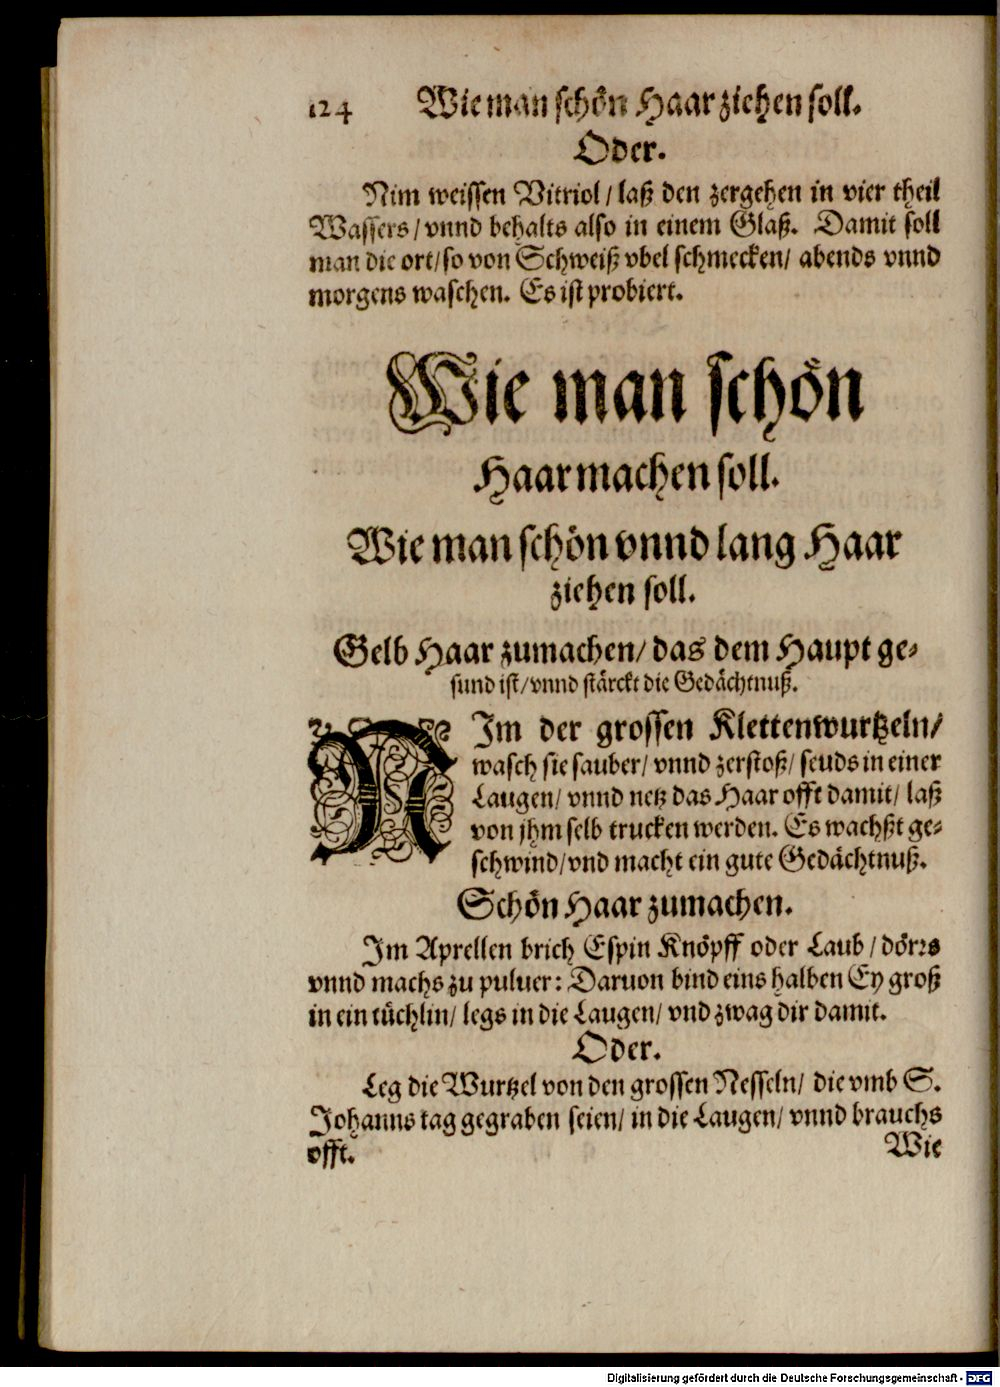 124 Wie man schön Haar ziehen soll.
Oder.
Nim weissen Vitriol / laß den zergehen in vier theil
Wassers / vnnd behalts also in einem Glaß. Damit soll
man die ort / so von Schweiß vbel schmecken / abends vnnd
morgens waschen. Es ist probiert.
Wie man schön
Haar machen soll.
Wie man schön vnnd lang Haar
ziehen soll.
Gelb Haar zumachen / das dem Haupt ge-
sund ist / vnnd stärckt die Gedächtnuß.
NIm der grossen Klettenwurtzeln /
wasch sie sauber / vnnd zerstoß / seuds in einer
Laugen / vnnd netz das Haar offt damit / laß
von jhm selb trucken werden. Es wachßt ge-
schwind / vnd macht ein gute Gedächtnuß.
Schön Haar zumachen.
Im Aprellen brich Espin Knöpff oder Laub / dörrs
vnnd machs zu puluer: Daruon bind eins halben Ey groß
in ein tüchlin / legs in die Laugen / vnd zwag dir damit.
Oder.
Leg die Wurtzel von den grossen Nesseln / die vmb S.
Johanns tag gegraben seien / in die Laugen / vnnd brauchs
offt. Wie
Digitalisierung gefördert durch die Deutsche Forschungsgemeinschaft - DFG